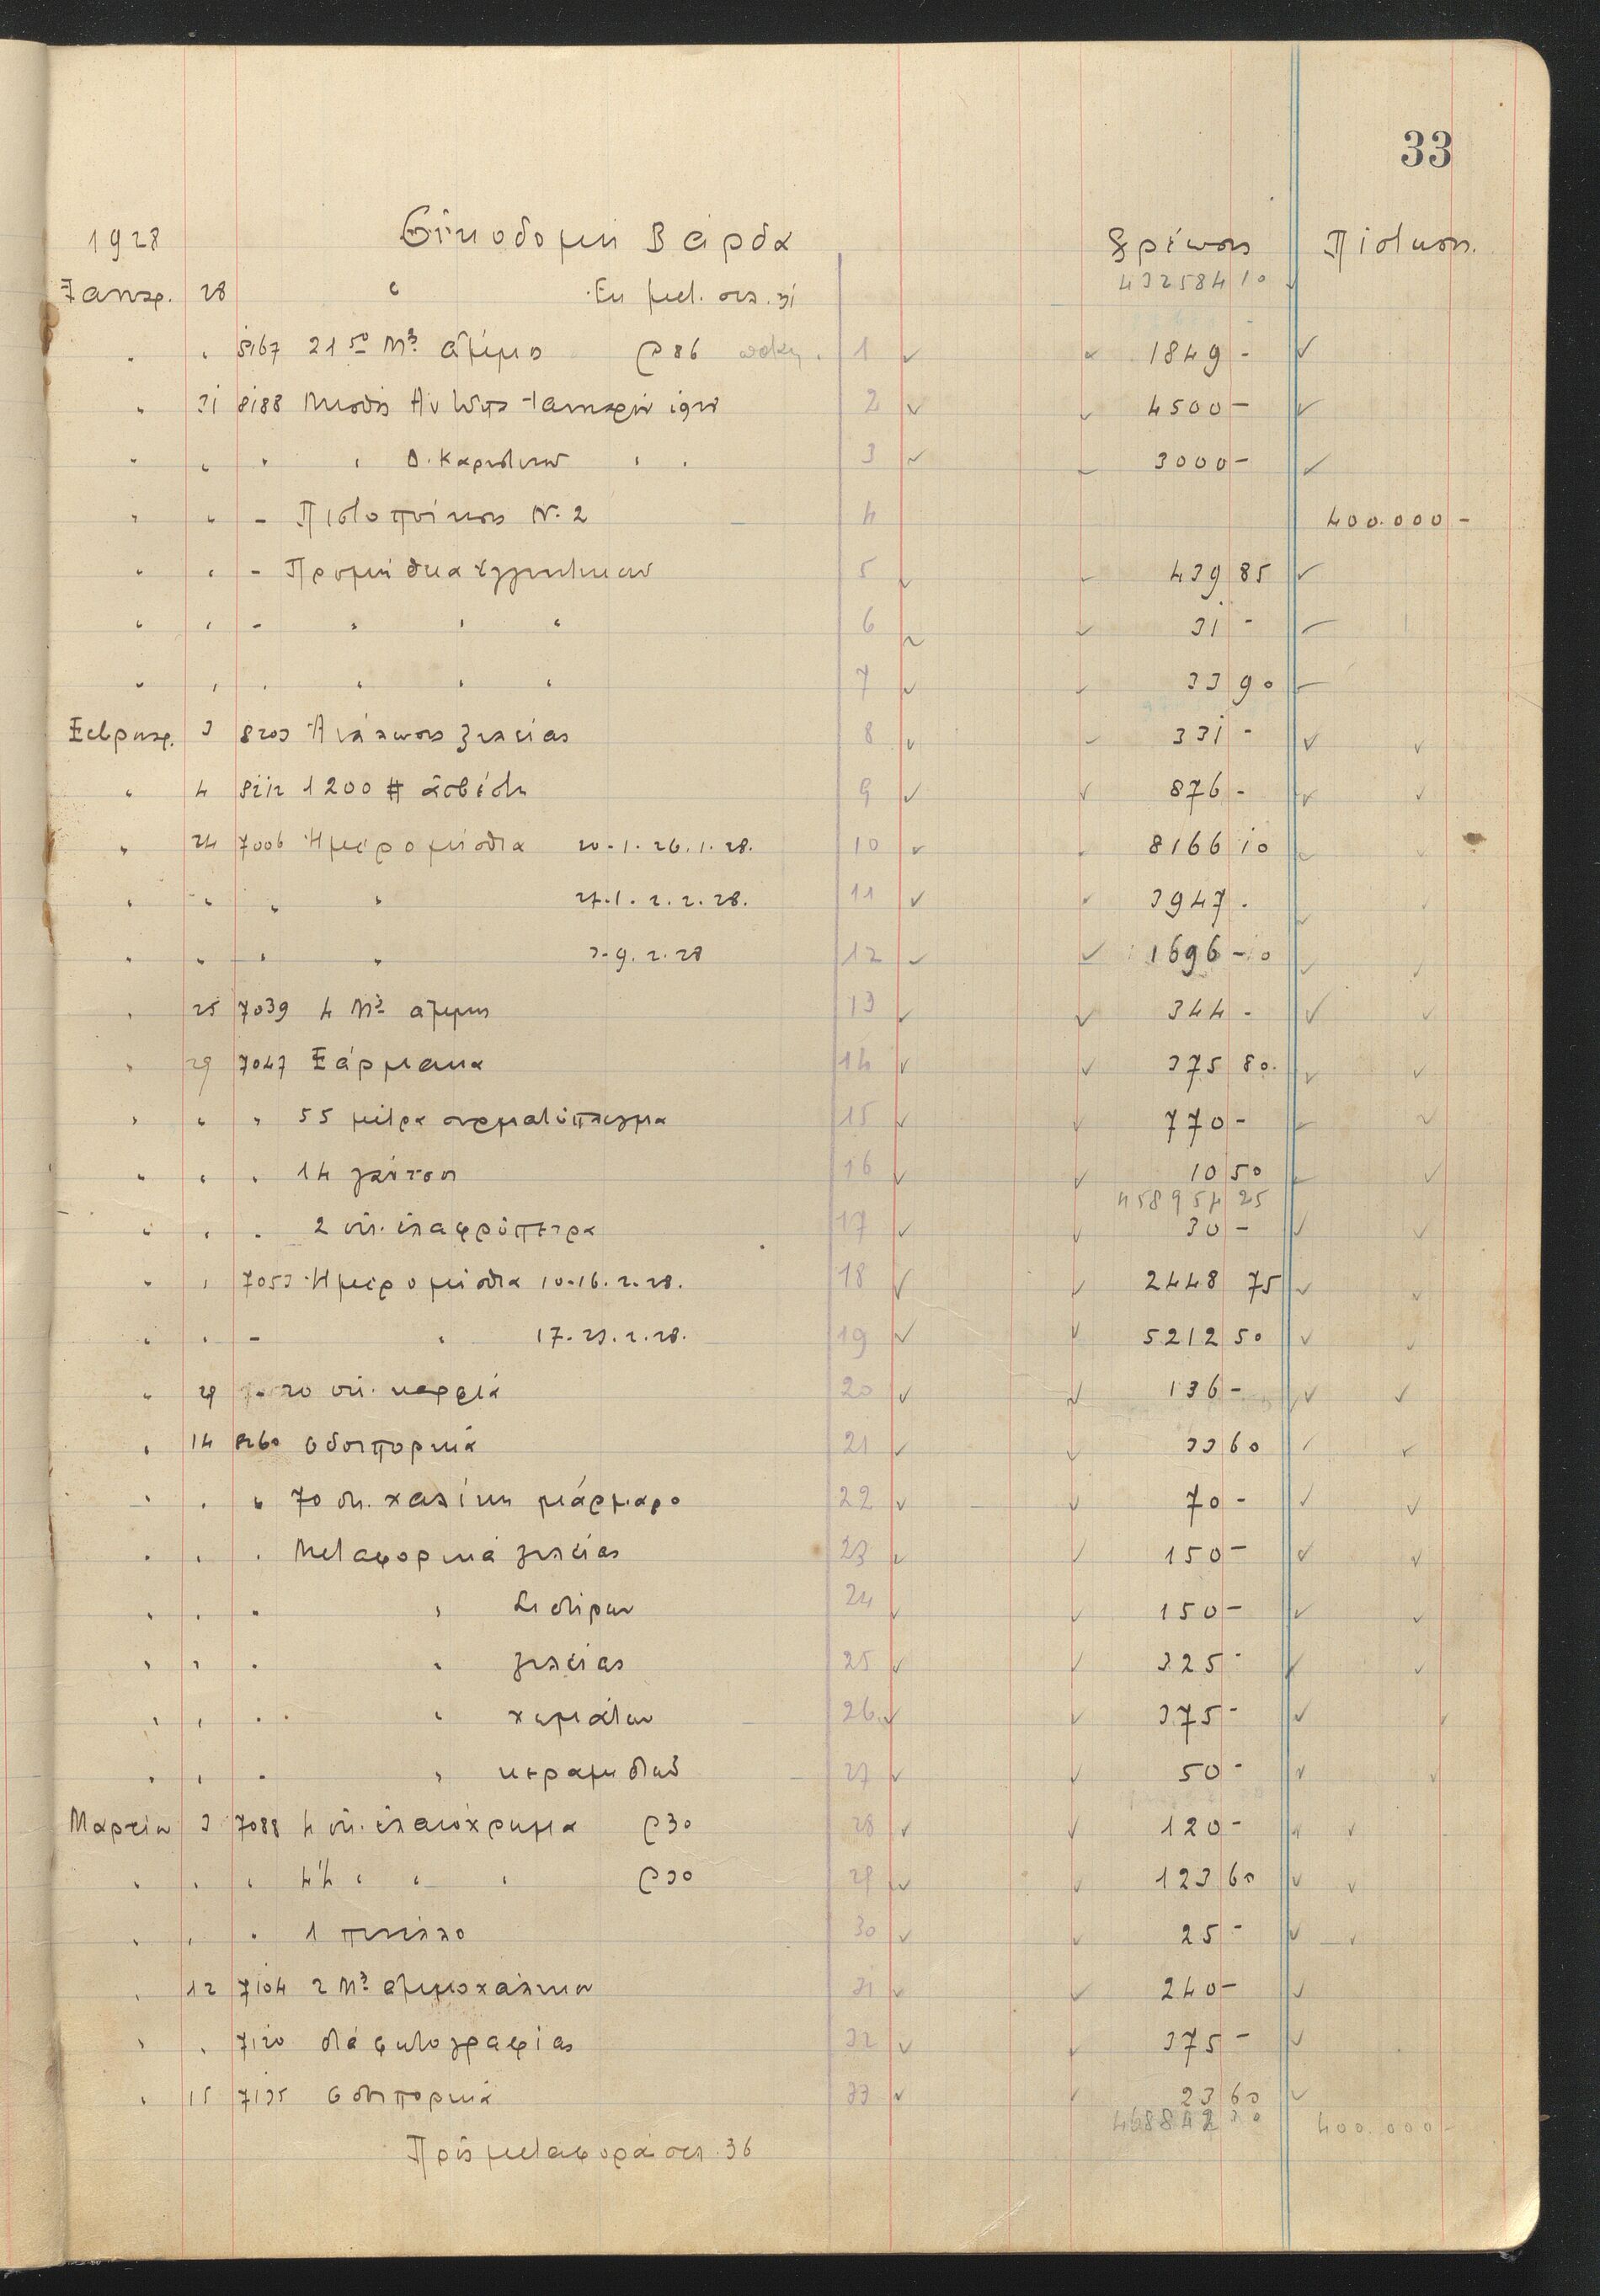 33
1928 Οἰκοδομὴ Βάρδα Χρέωσις Πίστωσις.
Ἰανουαρ. 28 " Ἐκ μετ. σελ. 31 432584 10
" " 8167 21 50 Μ3 ἄμμο @ 86 1 1849 -
" 31 8188 Μισθὸς Ἰανουαρίου 1928 2 4500 -
" " " " Δ. " " 3 3000 -
" " - Πιστοποίησις Ν. 2 4 400.000 -
" " - Προμήθεια 5 439 85
" " - " " " 6 31 -
" " " " " " 7 33 90
Φεβρουαρ. 3 8203 ξυλείας 8 331 -
" 4 8212 1200 # ἀσβέστη 9 876 -
" 24 7006 Ἡμερομίσθια 20.1.26.1.28. 10 8166 10
" " " " 27.1.2.2.28. 11 3947 .
" " " " 3-9.2.28 12 1696 - 10
" 25 7039 4 Μ3 ἄμμος 13 344 -
" 29 7047 Φάρμακα 14 375 80.
" " " 55 μέτρα συρματόπλεγμα 15 770 -
" " " 14 γάντσοι 16 10 50
458954 25
" " " 2 ὀκ. ἐλαφρόπετρα 17 30 -
" " 7053 Ἡμερομίσθια 10-16.2.28. 18 2448 75
" " - " 17-23.2.28. 19 5212 50
" 29 " 20 ὀκ. καρφιά 20 136 -
" 14 8260 Ὁδοιπορικά 21 33 60
" " " 70 ὀκ. χαλίκι μάρμαρο 22 70 -
" " " Μεταφορικὰ ξυλείας 23 150 -
" " " " Σιδήρων 24 150 -
" " " " ξυλείας 25 325 -
" " " " χωμάτων 26 375 -
" " " " κεραμιδιῶν 27 50 -
Μαρτίου 3 7088 4 ὀκ. ἐλαιόχρωμα @ 30 28 120 -
" " " 4'4 " " " @ 30 29 123 60
" " " 1 πινέλλο 30 25 -
" 12 7104 2 Μ3 ἀμμοχάλικον 31 240 -
" " 7120 διὰ φωτογραφίας 32 375 -
" 15 7135 Ὁδοιπορικά 33 23 60
468842 30 400.000 -
Πρὸς μεταφορὰ σελ. 36